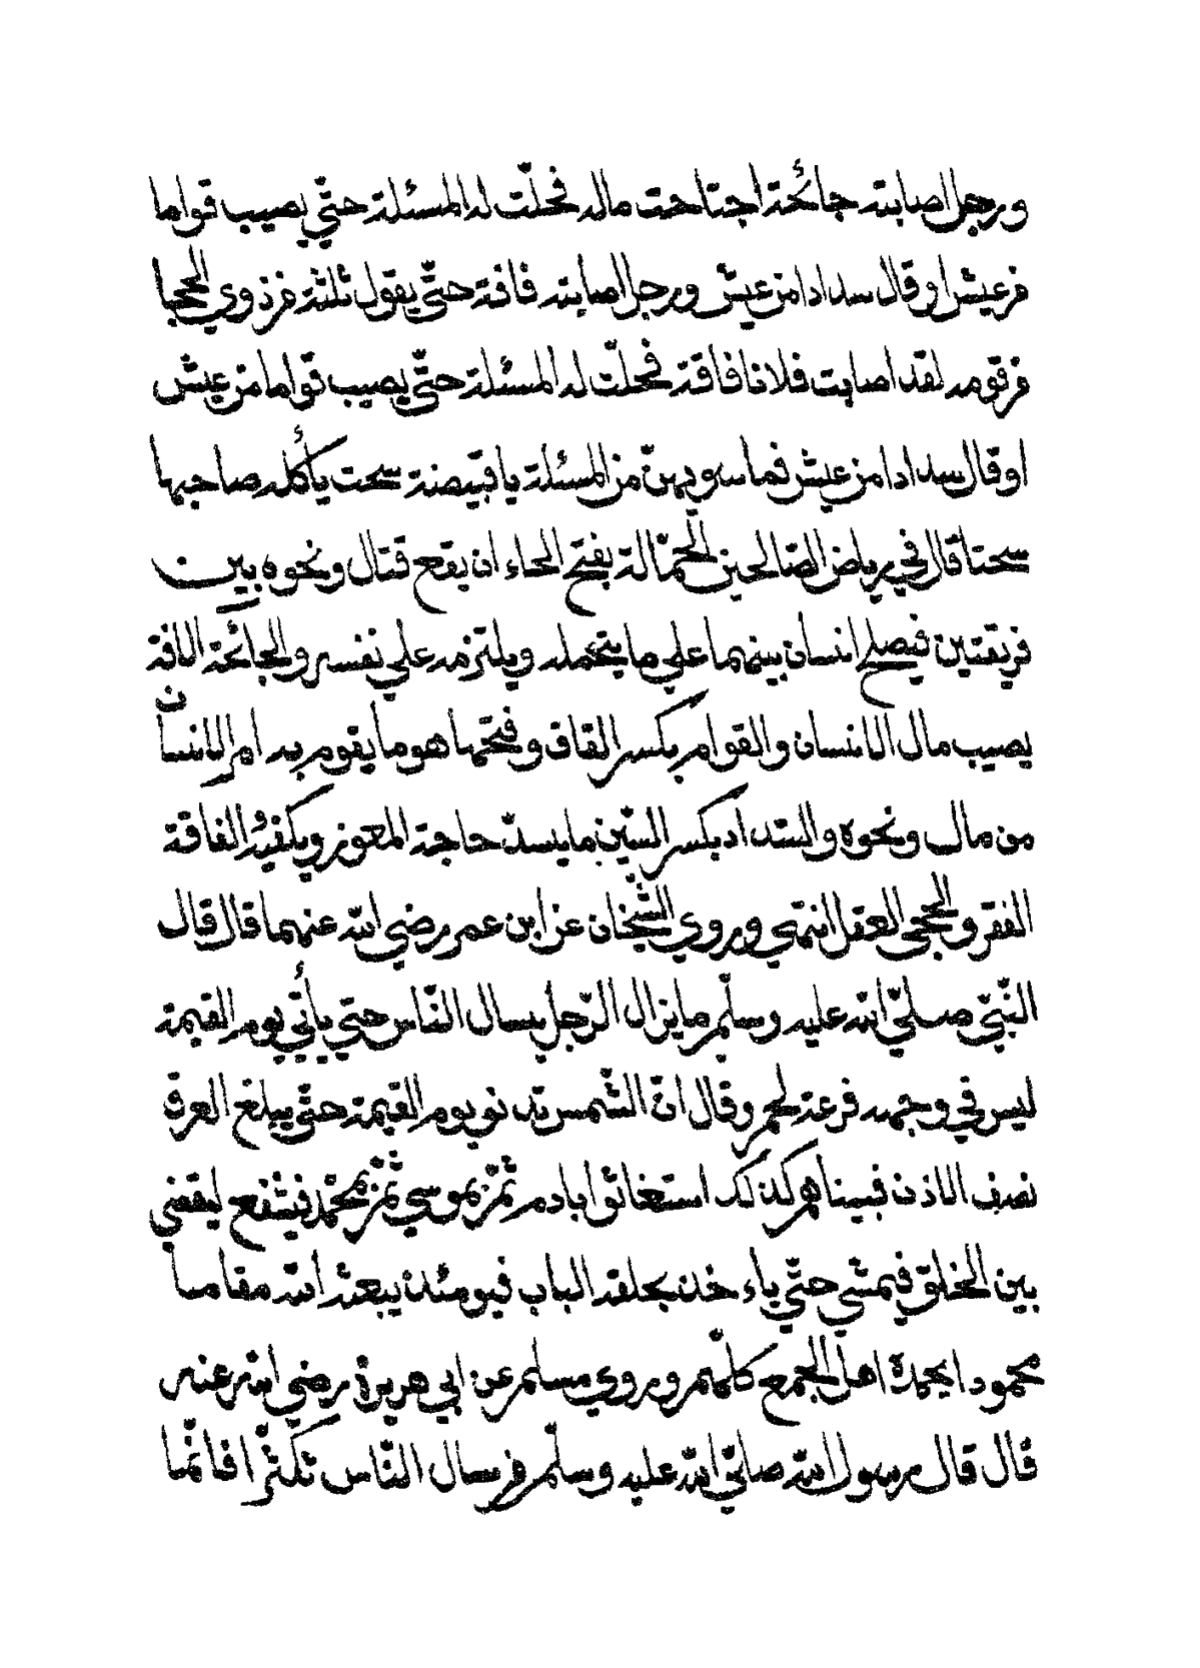 ورجل اصابته جائحة اجتاحت ماله فحلّت له المسئلة حتّي يصيب قواما
من عيش او قال سدادا من عيش ورجل اصابته فاقة حتّي يقول ثلثة من ذوي الحجا
من قومه لقد اصابت فلانا فاقة فحلّت له المسئلة حتّي يصيب قوّاما من عيش
او قال سدادا من عيش فما سويهنّ من المسئلة يا قبيصة سحت يأكله صاحبها
سحتا قال في رياض الصّالحين الحمّالة بفتح الحاء ان يقع قتال ونحوه بين
فريقين فيصلح انسان بينهما علي ما يتحمله ويلتزمه علي نفسه والجائحة الافة
يصيب مال الانسان والقوام بكسر القاف وفتحها هو ما يقوم به امر الانسان
من مال ونحوه والسّداد بكسر السّين ما يسدّ حاجة المعوز ويكفيه والفاقة
الفقر والحجى العقل انتهي وروي الشّيخان عن ابن عمر رضي الله عنهما قال قال
النّبيّ صلّي الله عليه وسلّم ما يزال الرّجل يسال النّاس حتي يأتي يوم القيمة
ليس في وجهه مزعة لحم وقال انّ الشّمس تدنو يوم القيمة حتّي يبلغ العرق
نصف الاذن فبيناهم كذلك استغاثوا بادم ثمّ بموسي ثمّ بمحمّد فيشفع ليقضي
بين الخلق فيمشي حتّي ياءخذ بحلقة الباب فيومئذ يبعثه الله مقاما
محمودا يحمده اهل الجمع كلّهم وروي مسلم عن ابي هريرة رضي الله عنه
قال قال رسول الله صلّي الله عليه وسلّم من سال النّاس تكثّرا فانّما